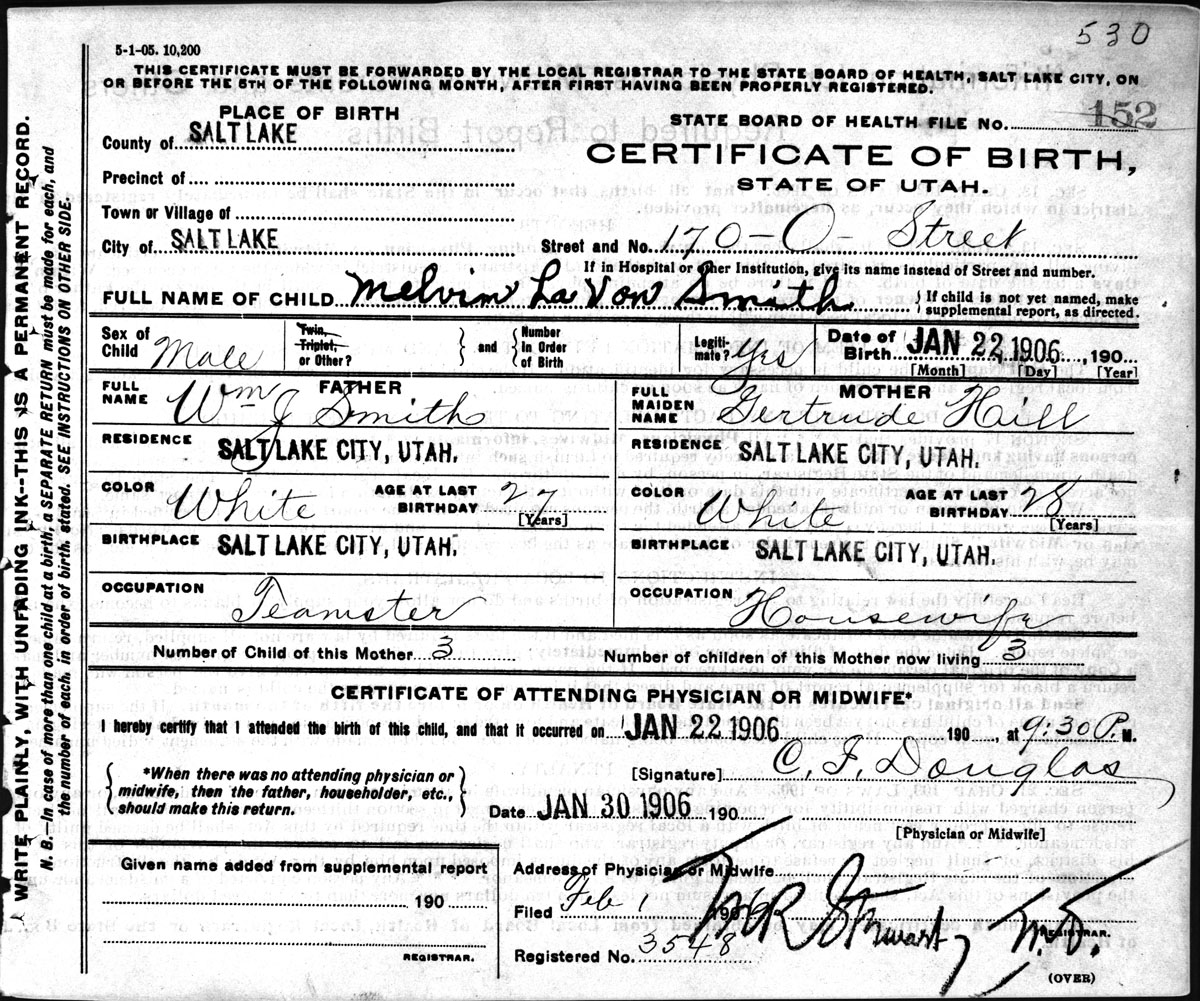 530
5-1-05. 10,200
THIS CERTIFICATE MUST BE FORWARDED BY THE LOCAL REGISTRAR TO THE STATE BOARD OF HEALTH, SALT LAKE CITY, ON
OR BEFORE THE 5TH OF THE FOLLOWING MONTH, AFTER FIRST HAVING BEEN PROPERLY REGISTERED.
PLACE OF BIRTH
STATE BOARD OF HEALTH FILE No. 152
County of SALT LAKE
CERTIFICATE OF BIRTH,
Precinct of
STATE OF UTAH.
Town or Village of
City of SALT LAKE Street and No. 170-O-Street
If in Hospital or other Institution, give its name instead of Street and number.
FULL NAME OF CHILD Melvin La Von Smith { If child is not yet named, make supplemental report, as directed.
Sex of Child Male Twin, Triplet, or Other? } and { Number In Order of Birth Legitimate? Yes Date of Birth JAN 22 1906, 190
[Month] [Day] [Year]
FULL NAME FATHER Wm J Smith
FULL MAIDEN NAME MOTHER Gertrude Hill
RESIDENCE SALT LAKE CITY, UTAH.
RESIDENCE SALT LAKE CITY, UTAH.
COLOR White AGE AT LAST BIRTHDAY 27 [Years]
COLOR White AGE AT LAST BIRTHDAY 28 [Years]
BIRTHPLACE SALT LAKE CITY, UTAH.
BIRTHPLACE SALT LAKE CITY, UTAH.
OCCUPATION Teamster
OCCUPATION Housewife
Number of Child of this Mother 3 Number of children of this Mother now living 3
CERTIFICATE OF ATTENDING PHYSICIAN OR MIDWIFE*
I hereby certify that I attended the birth of this child, and that it occurred on JAN 22 1906 190, at 9:30 P. M.
{ *When there was no attending physician or
midwife, then the father, householder, etc.,
should make this return. }
[Signature] C. F. Douglas
Date JAN 30 1906 190
[Physician or Midwife]
Given name added from supplemental report
190
REGISTRAR.
Address of Physician or Midwife
Filed Feb 1 1906 Stewart M.D.
REGISTRAR.
Registered No. 3548
(OVER)
WRITE PLAINLY, WITH UNFADING INK--THIS IS A PERMANENT RECORD.
N. B. In case of more than one child at a birth, a SEPARATE RETURN must be made for each, and
the number of each, in order of birth, stated. SEE INSTRUCTIONS ON OTHER SIDE.